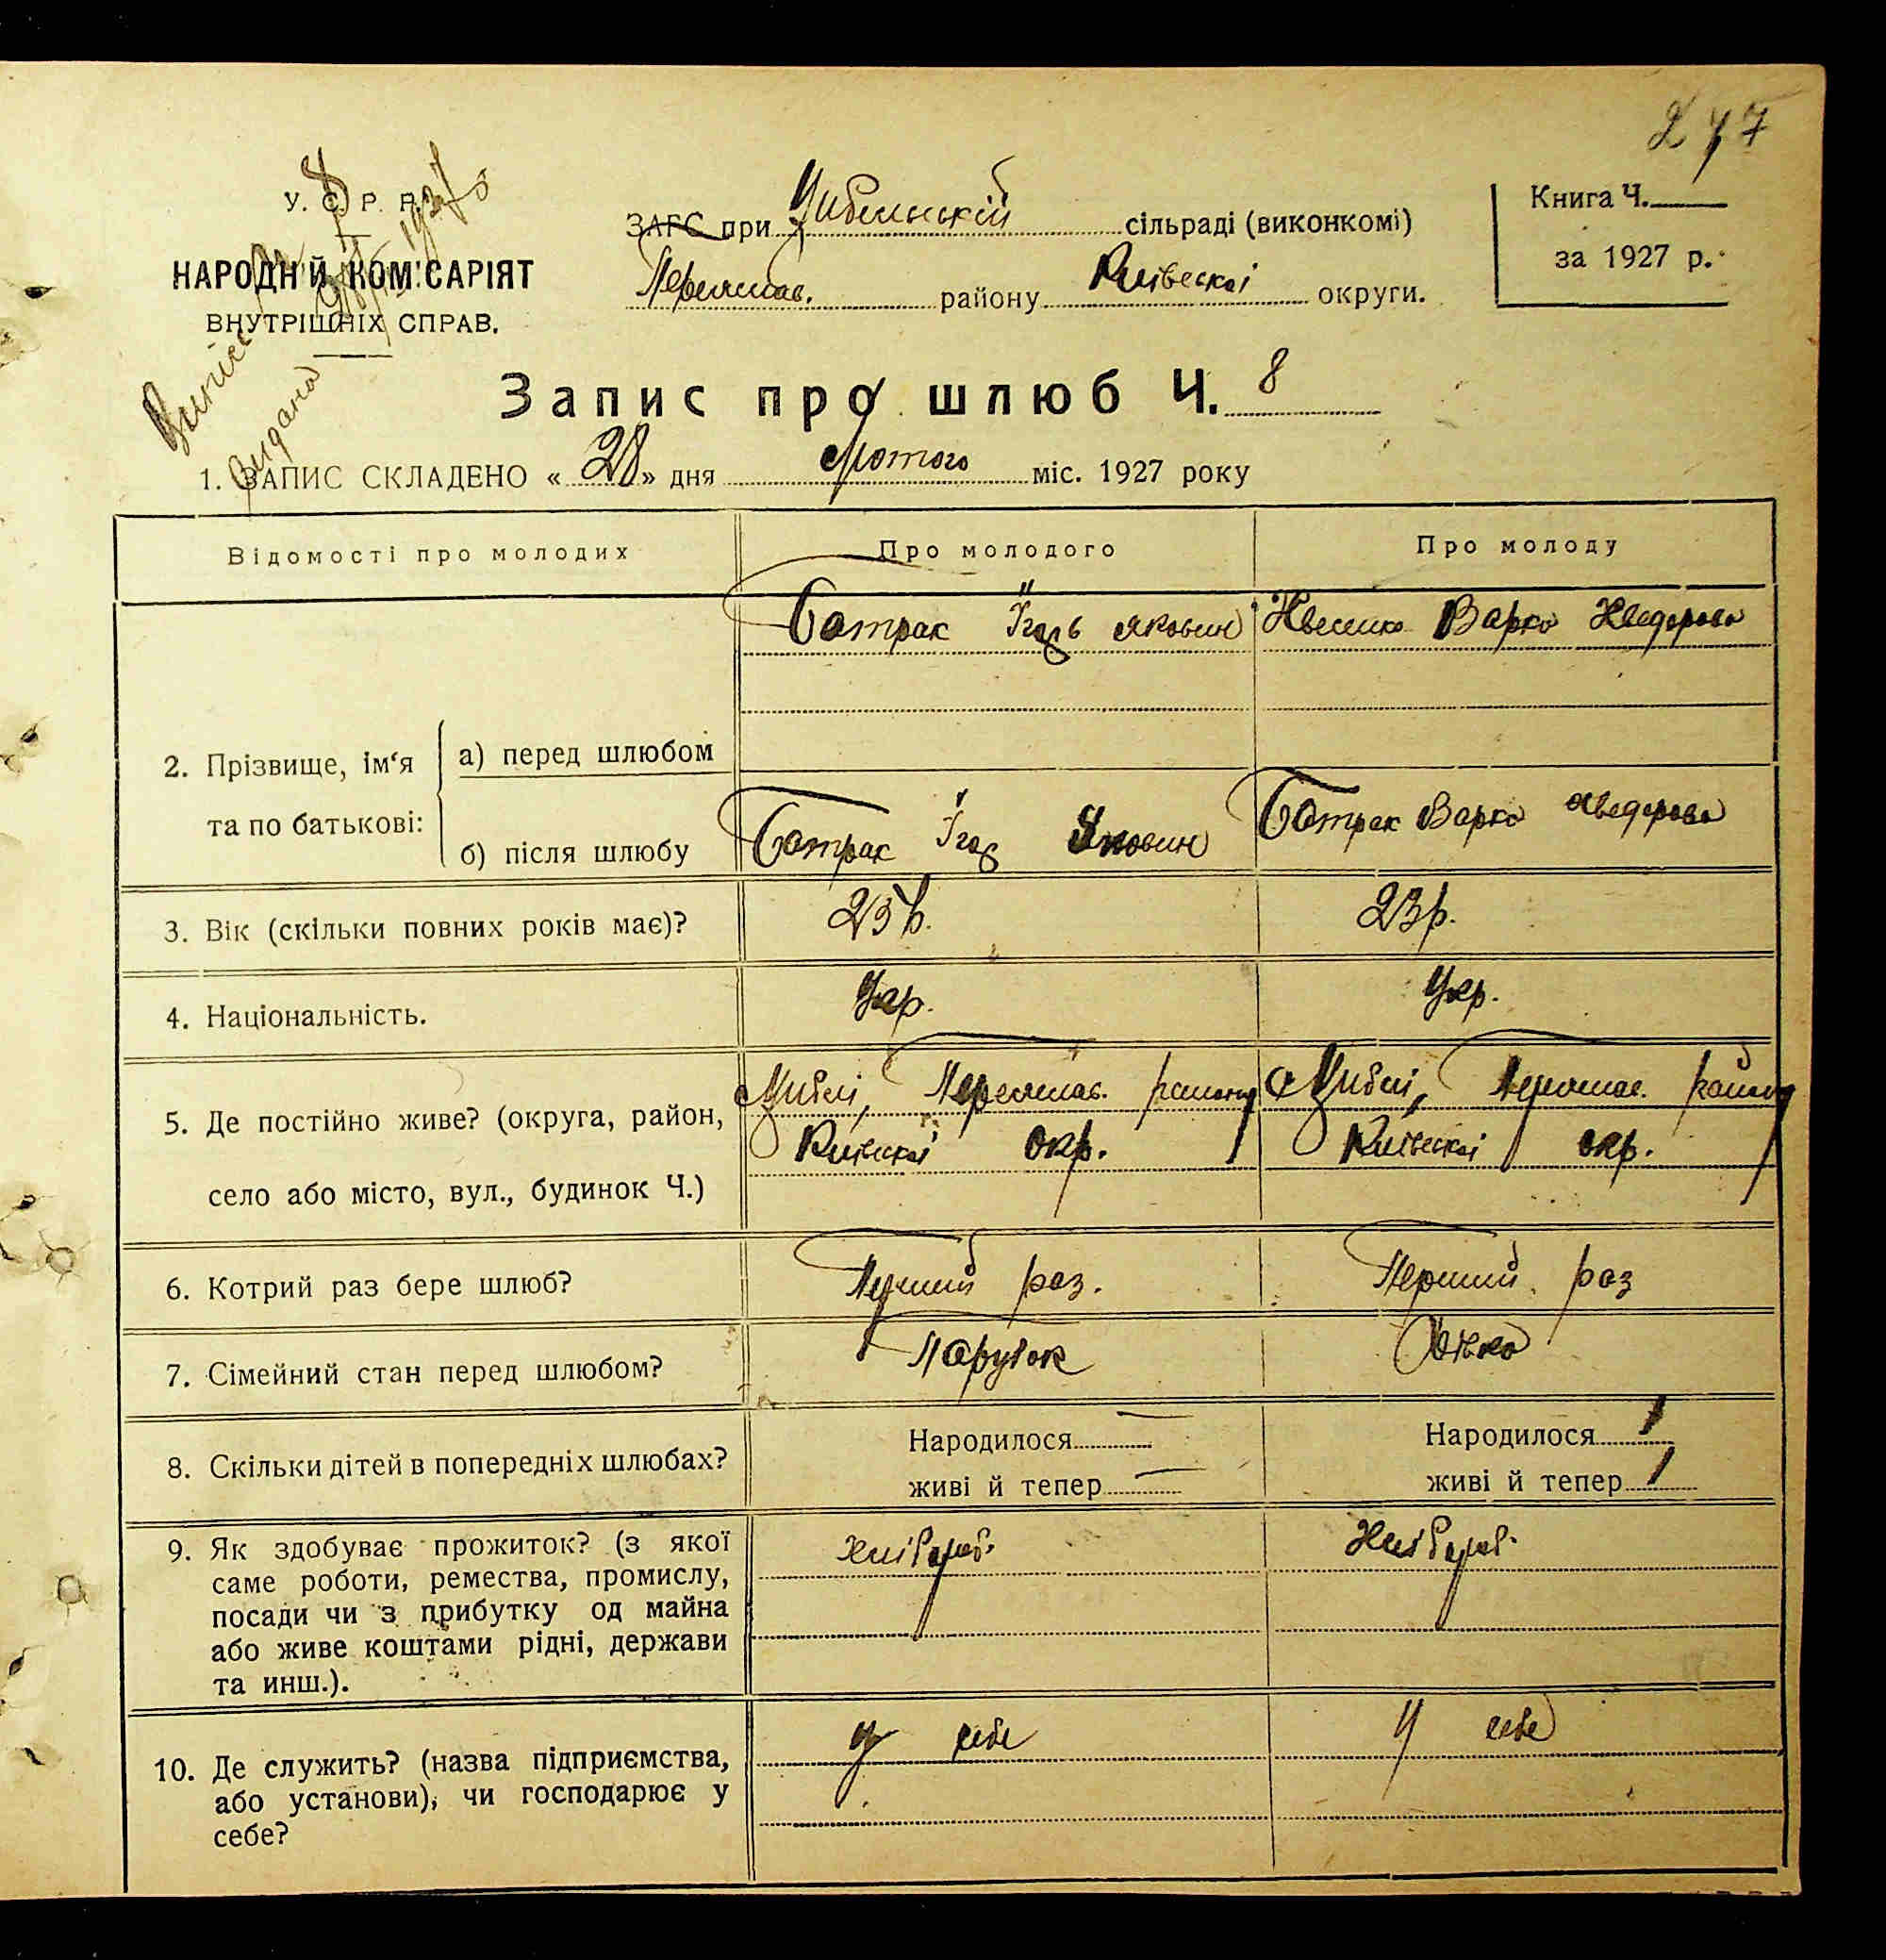 277
У. С. Р. Р.
НАРОДНІЙ КОМІСАРІЯТ
ВНУТРІШНІХ СПРАВ.
Випис
видано
8
ЗАГС при Цибельській сільраді (виконкомі)
Переяслав. району Київської округи.
Книга Ч.
за 1927 р.
Запис про шлюб Ч. 8
1. ЗАПИС СКЛАДЕНО « 28 » дня Лютого міс. 1927 року
Відомості про молодих
Про молодого
Про молоду
2. Прізвище, ім'я та по батькові:
а) перед шлюбом
Батрак Ігнь Якович
Варка Хведорова
б) після шлюбу
Батрак Яковин
Батрак Варка Хведорова
3. Вік (скільки повних років має)?
25 р.
23 р.
4. Національність.
Укр.
Укр.
5. Де постійно живе? (округа, район,
село або місто, вул., будинок Ч.)
с Циблі, Переяслав. району
Київської окр.
с Циблі, Переяслав. району
Київської окр.
6. Котрий раз бере шлюб?
Перший раз.
Перший раз
7. Сімейний стан перед шлюбом?
Парубок
Дівка
8. Скільки дітей в попередніх шлюбах?
Народилося —
живі й тепер —
Народилося 1
живі й тепер 1
9. Як здобуває прожиток? (з якої
саме роботи, ремества, промислу,
посади чи з прибутку од майна
або живе коштами рідні, держави
та инш.).
хлібороб.
Хлібороб.
10. Де служить? (назва підприємства,
або установи), чи господарює у
себе?
у себе
у себе